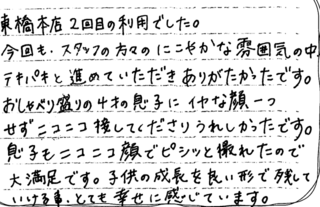 東橋本店2回目の利用でした。
今回も、スタッフの方々のにこやかな雰囲気の中、
テキパキと進めていただきありがたかったです。
おしゃべり盛りの4才の息子にイヤな顔一つ
せずニコニコ接してくださりうれしかったです。
息子もニコニコ顔でピシッと撮れたので
大満足です。子供の成長を良い形で残して
いける事、とても幸せに感じています。